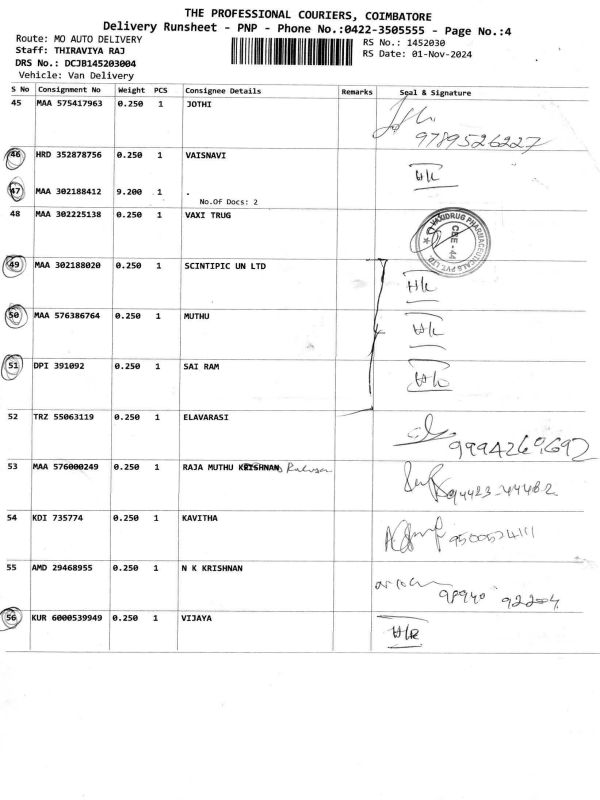 THE PROFESSIONAL COURIERS, COIMBATORE
Delivery Runsheet - PNP - Phone No.:0422-3505555 - Page No.:4
Route: MO AUTO DELIVERY
Staff: THIRAVIYA RAJ
DRS No.: DCJB145203004
Vehicle: Van Delivery
RS No.: 1452030
RS Date: 01-Nov-2024
S No Consignment No Weight PCS Consignee Details Remarks Seal & Signature
45 MAA 575417963 0.250 1 JOTHI
9789526227
46 HRD 352878756 0.250 1 VAISNAVI
H/C
47 MAA 302188412 9.200 1 .
No.Of Docs: 2
48 MAA 302225138 0.250 1 VAXI TRUG
VAXIDRUG PHARMACEUTICALS PVT. LTD.
CBE - 44
49 MAA 302188020 0.250 1 SCINTIPIC UN LTD
50 MAA 576386764 0.250 1 MUTHU
51 DPI 391092 0.250 1 SAI RAM
52 TRZ 55063119 0.250 1 ELAVARASI
53 MAA 576000249 0.250 1 RAJA MUTHU KRISHNAN
94423-44482
54 KDI 735774 0.250 1 KAVITHA
55 AMD 29468955 0.250 1 N K KRISHNAN
98940 92204
56 KUR 6000539949 0.250 1 VIJAYA